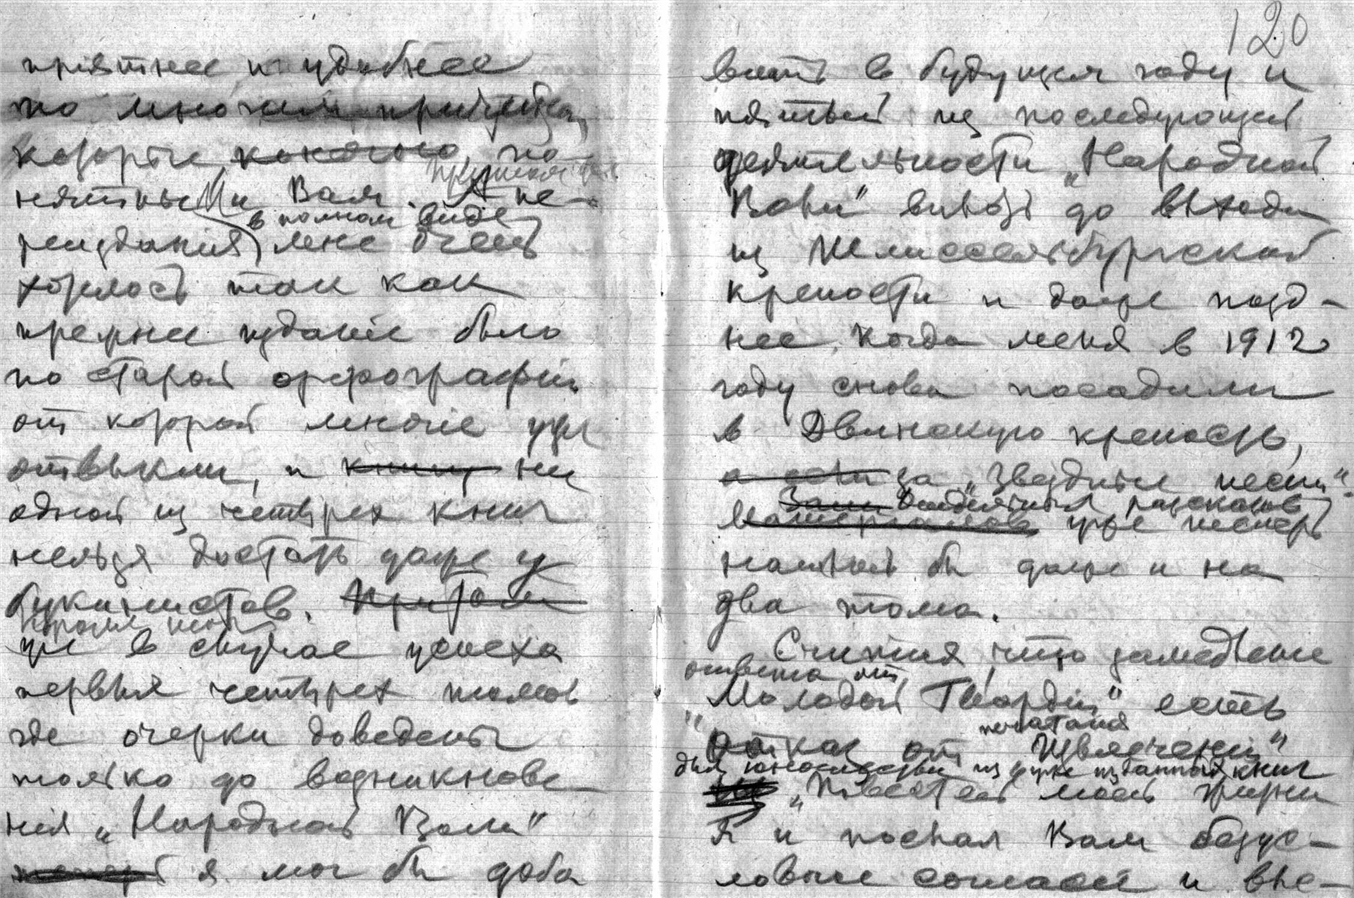 приятнее и удобнее
по многим причинам,
которые, по-
нятны и Вам.
в полном виде
реиздания мне очень
хотелось так как
прежнее издание было
по старой орфографии
от которой многие уже
отвыкли, и книг ни
одной из четырех книг
нельзя достать даже у
букинистов. Притом
Кроме того
уже в случае успеха
первых четырех томов
где очерки доведены
только до возникнове-
ния „Народной Воли"
теперь я мог бы доба
120
вить в будущем году и
пятый из последующей
деятельности „Народной
Воли" вплоть до выхода
из Шлиссельбургской
крепости и даже позд-
нее, когда меня в 1912
году снова посадили
в Двинскую крепость,
за „Звездные песни".
рассказов
материалов уже теперь
нашлось бы даже и на
два тома.
Считая, что замедление
ответа от
„Молодой Гвардии" есть
печатания
отказ от „
для юношества из уже изданных книг
„Повестей моей жизни
я и послал Вам безус-
ловное согласие и вне-